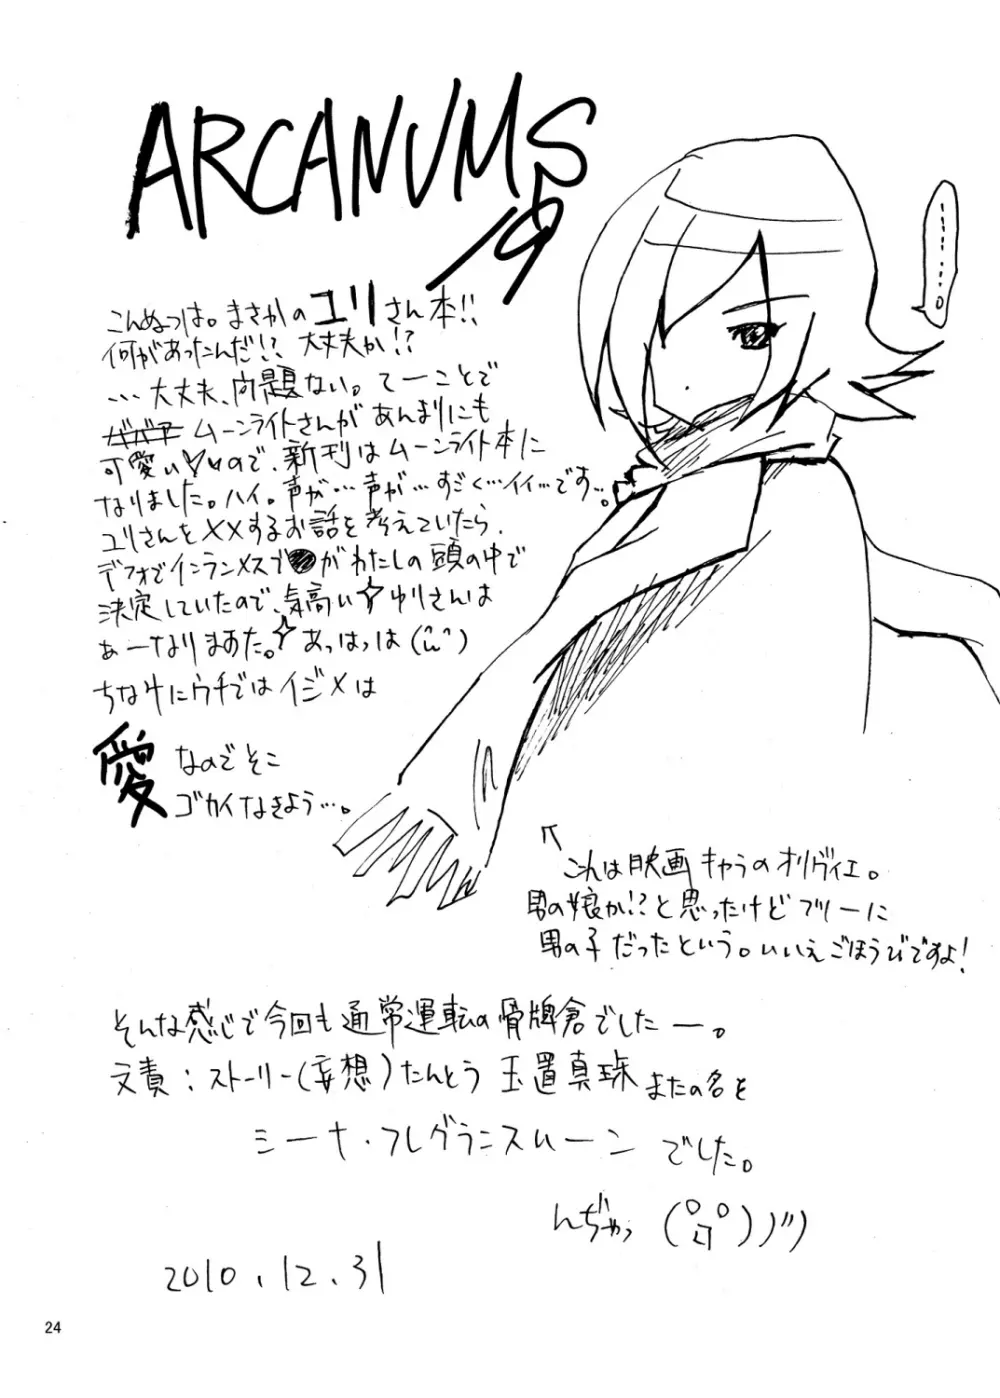 ARCANUMS
19
………。
こんぬつは。まさかのユリさん本!!
何があったんだ!? 大丈夫か!?
…大丈夫、問題ない。てーことで
ムーンライトさんがあんまりにも
可愛いので、新刊はムーンライト本に
なりました。ハイ。声が…声が…すごく…イイ…です…。
ユリさんを××するお話を考えていたら、
デフォでインランメスブ●がわたしの頭の中で
決定していたので、気高い☆ゆりさんは
あーなりまあた。☆あっはっは(^ω^)
ちなみにウチではイジメは
愛なのでそこ
ゴカイなきよう…。
これは映画キャラのオリヴィエ。
男の娘か!?と思ったけどフツーに
男の子だったという。いいえごほうびですよ!
そんな感じで今回も通常運転の骨牌倉でしたー。
文責:ストーリー(妄想)たんとう 玉置真珠 またの名を
シーナ・フレグランスムーン でした。
んぢゃっ
2010.12.31
24